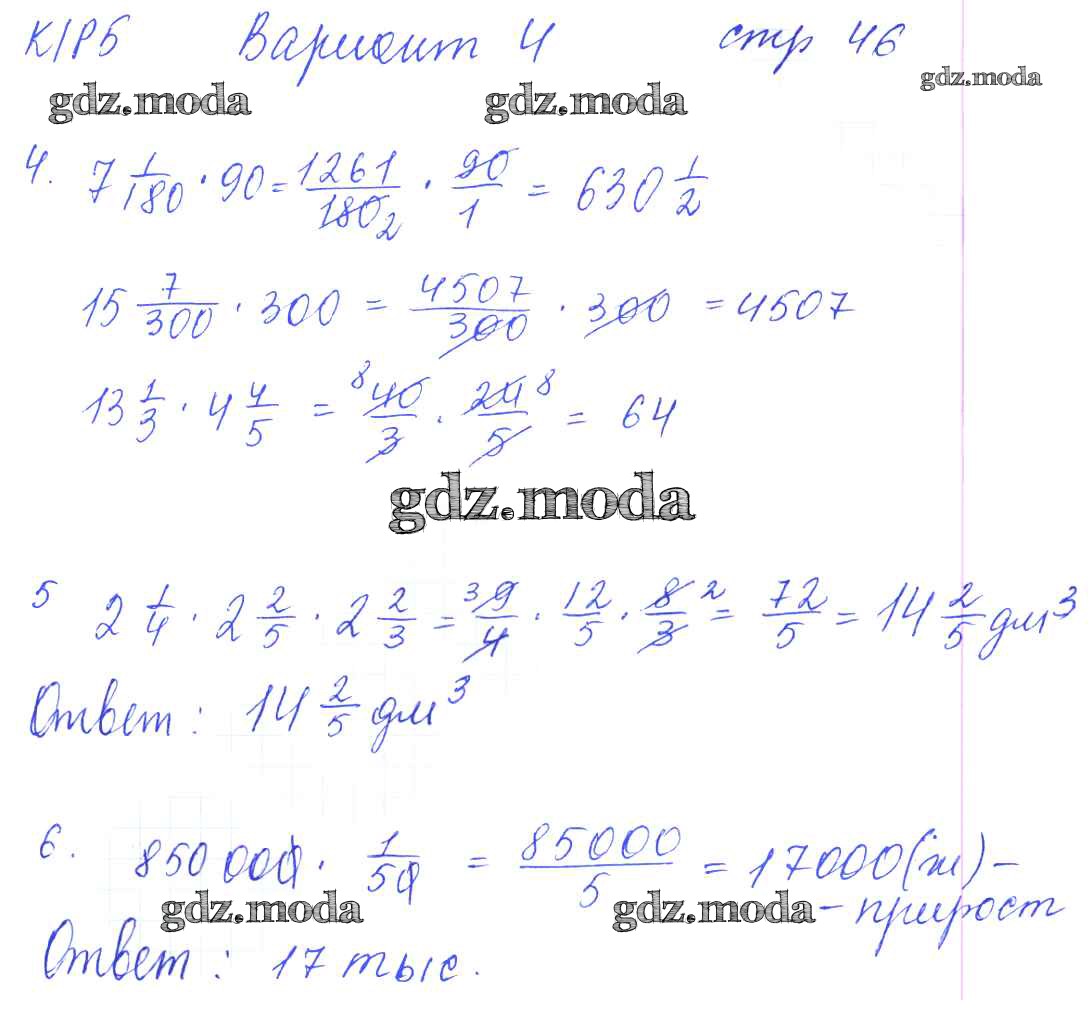 К/Р5 Вариант 4 стр 46
gdz.moda gdz.moda gdz.moda
4. 7 1/180 · 90 = 1261/180 2 · 90/1 = 630 1/2
15 7/300 · 300 = 4507/300 · 300 = 4507
13 1/3 · 4 4/5 = 8 40/3 · 24/5 8 = 64
gdz.moda
5 2 1/4 · 2 2/5 · 2 2/3 = 3 9/4 · 12/5 · 8/3 2 = 72/5 = 14 2/5 дм³
Ответ: 14 2/5 дм³
6. 850 000 · 1/50 = 85000/5 = 17000 (ж) –
gdz.moda gdz.moda – прирост
Ответ: 17 тыс.